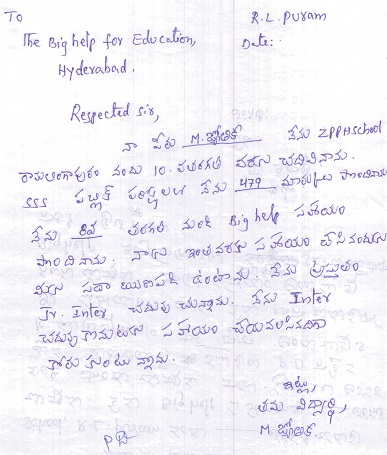 To
R.L. Puram
The Big help for Education,
Date:
Hyderabad.
Respected sir,
నా పేరు M. జ్యోతిక నేను ZPPHSchool
రామలింగాపురం నందు 10. వతరగతి వరకు చదివినాను.
SSS పబ్లిక్ పరీక్షలలో నేను 479 మార్కులు పొందినాను
నేను 8వ తరగతి నుండి Big help సహాయం
పొందినాను. నాకు ఇంతవరకు సహాయం చేసినందుకు
మీకు సదా ఋణపడి ఉంటాను. నేను ప్రస్తుతం
Jr. Inter చదువు చున్నాను. నేను Inter
చదువు కొనుటకు సహాయం చేయవలసినదిగా
కోరు కుంటున్నాను.
ఇట్లు,
తమ విద్యార్థి,
M. జ్యోతిక